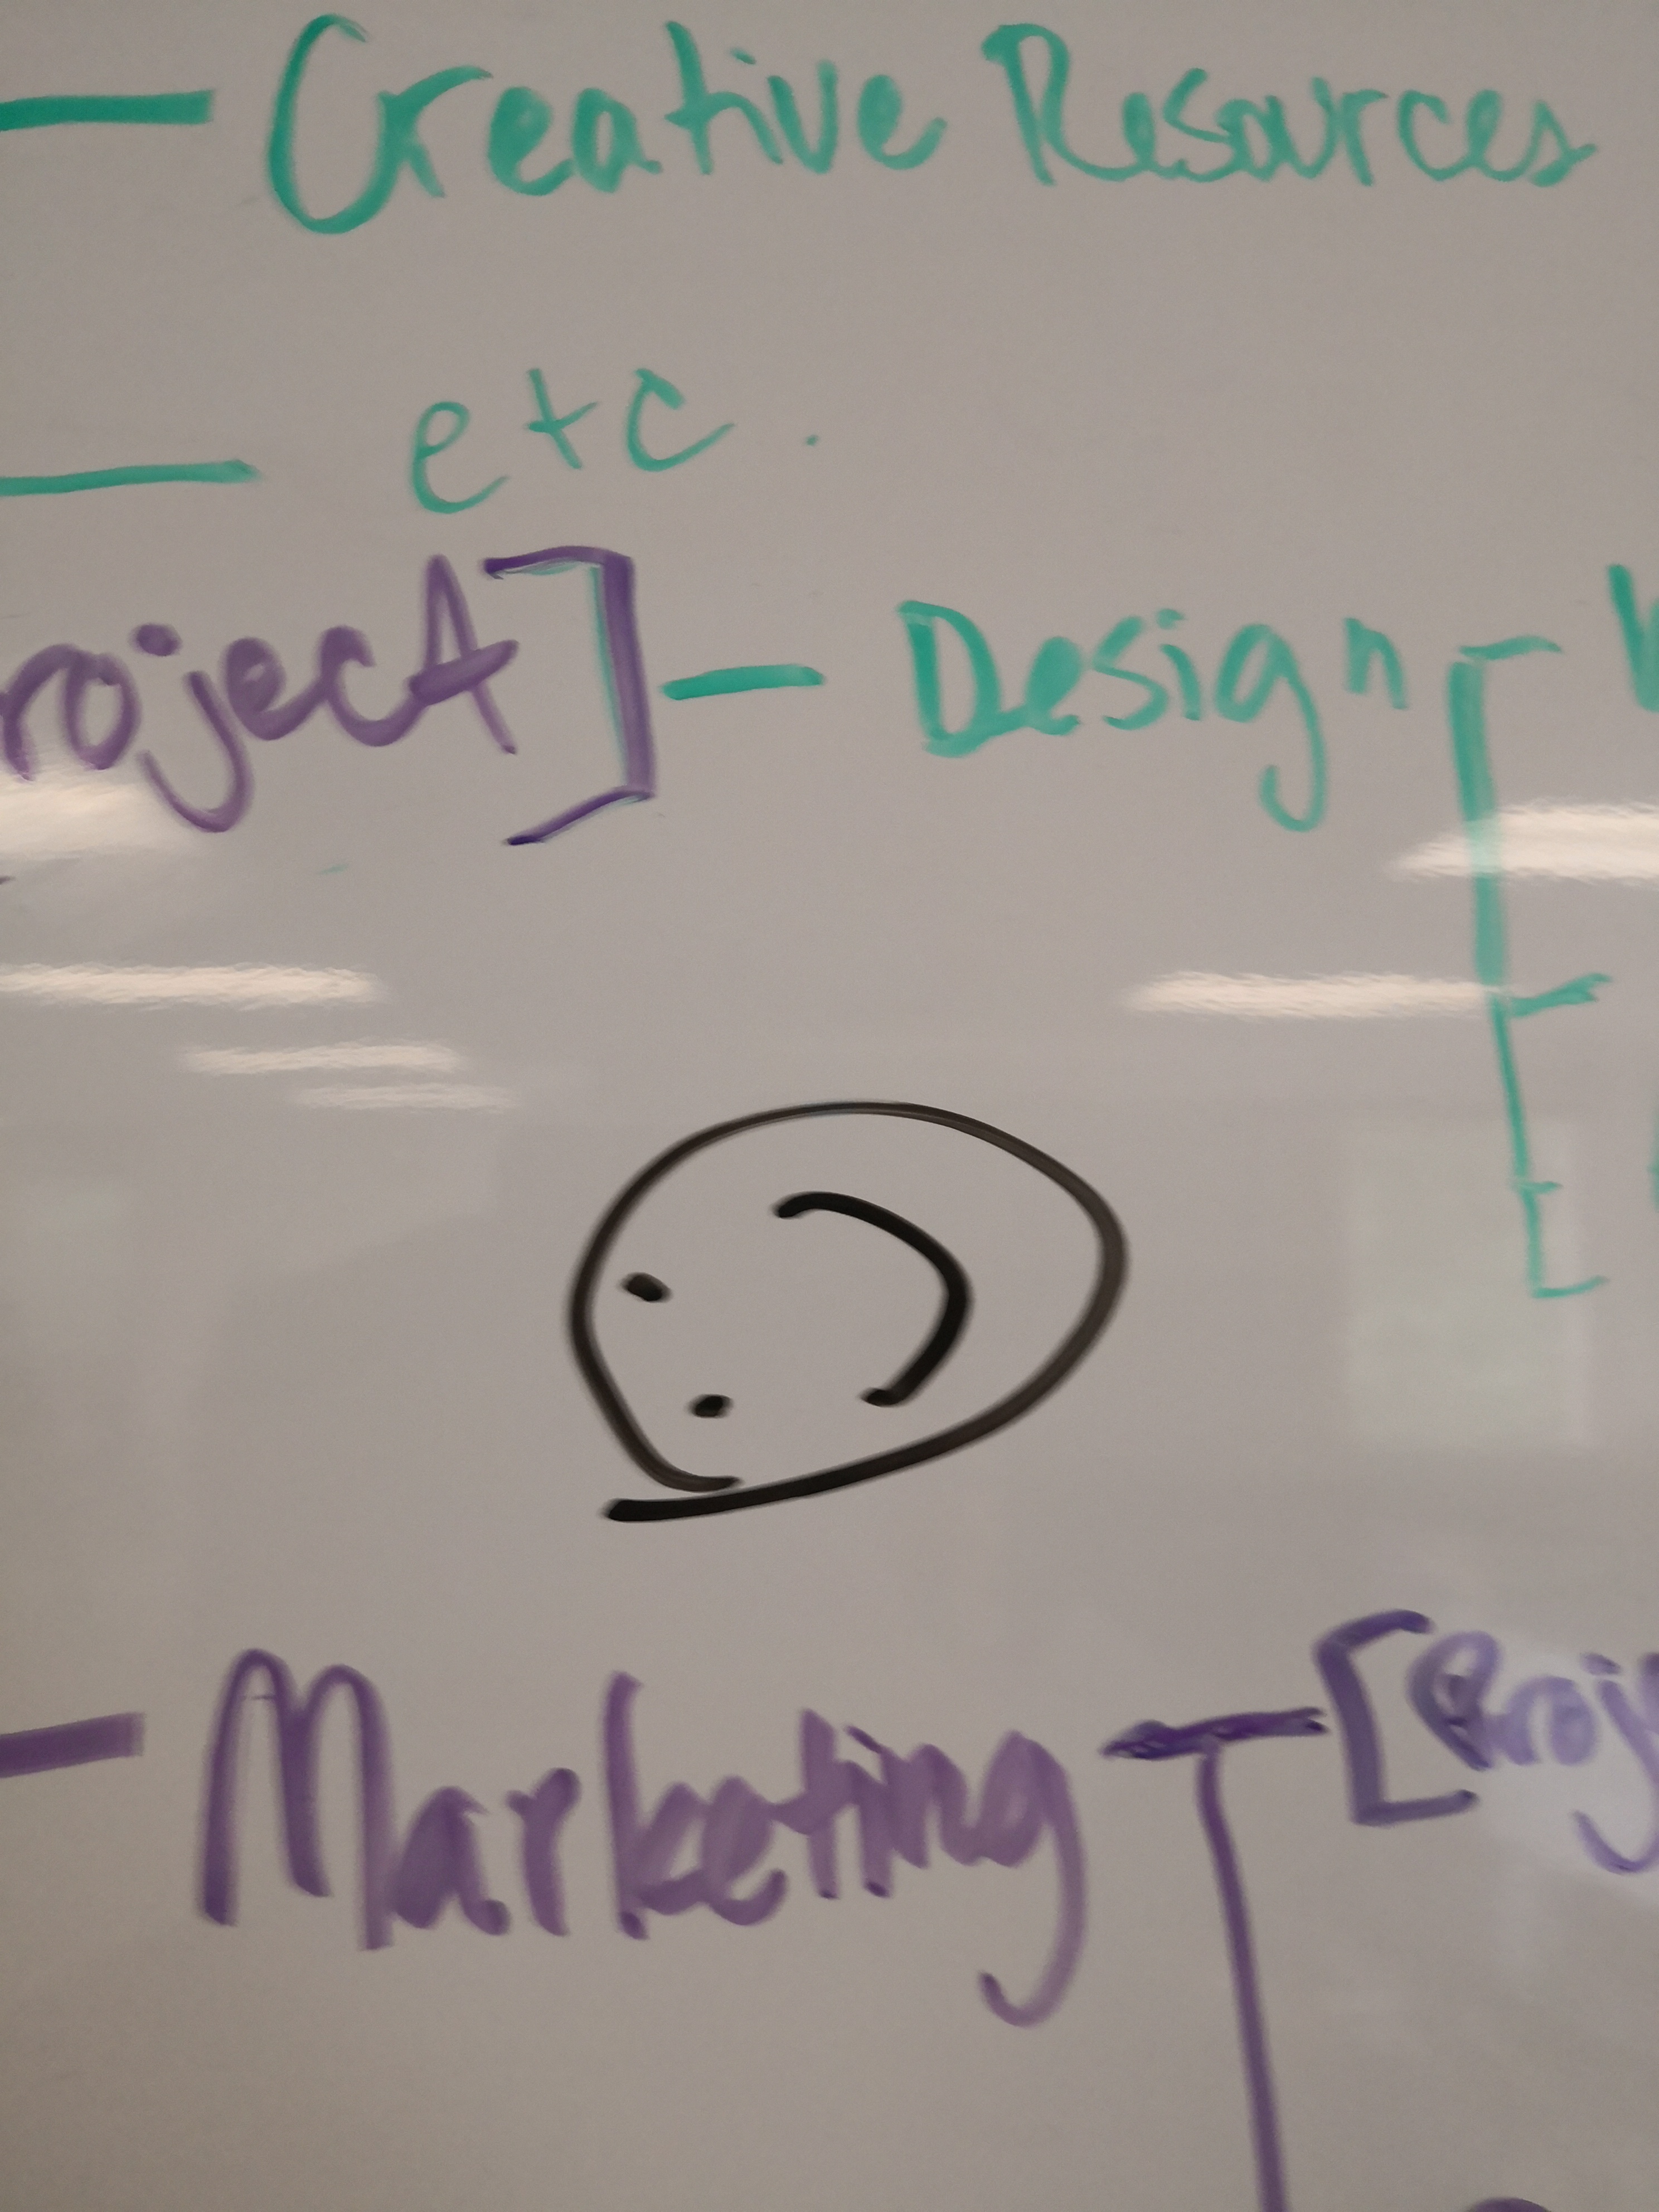 Creative Resources
etc.
roject] - Design
Marketing [Proj